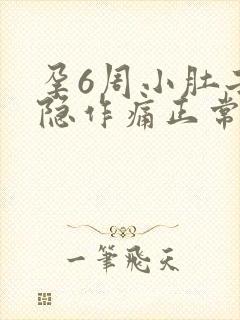 孕6周小肚子
隐作痛正常
一筆飛天